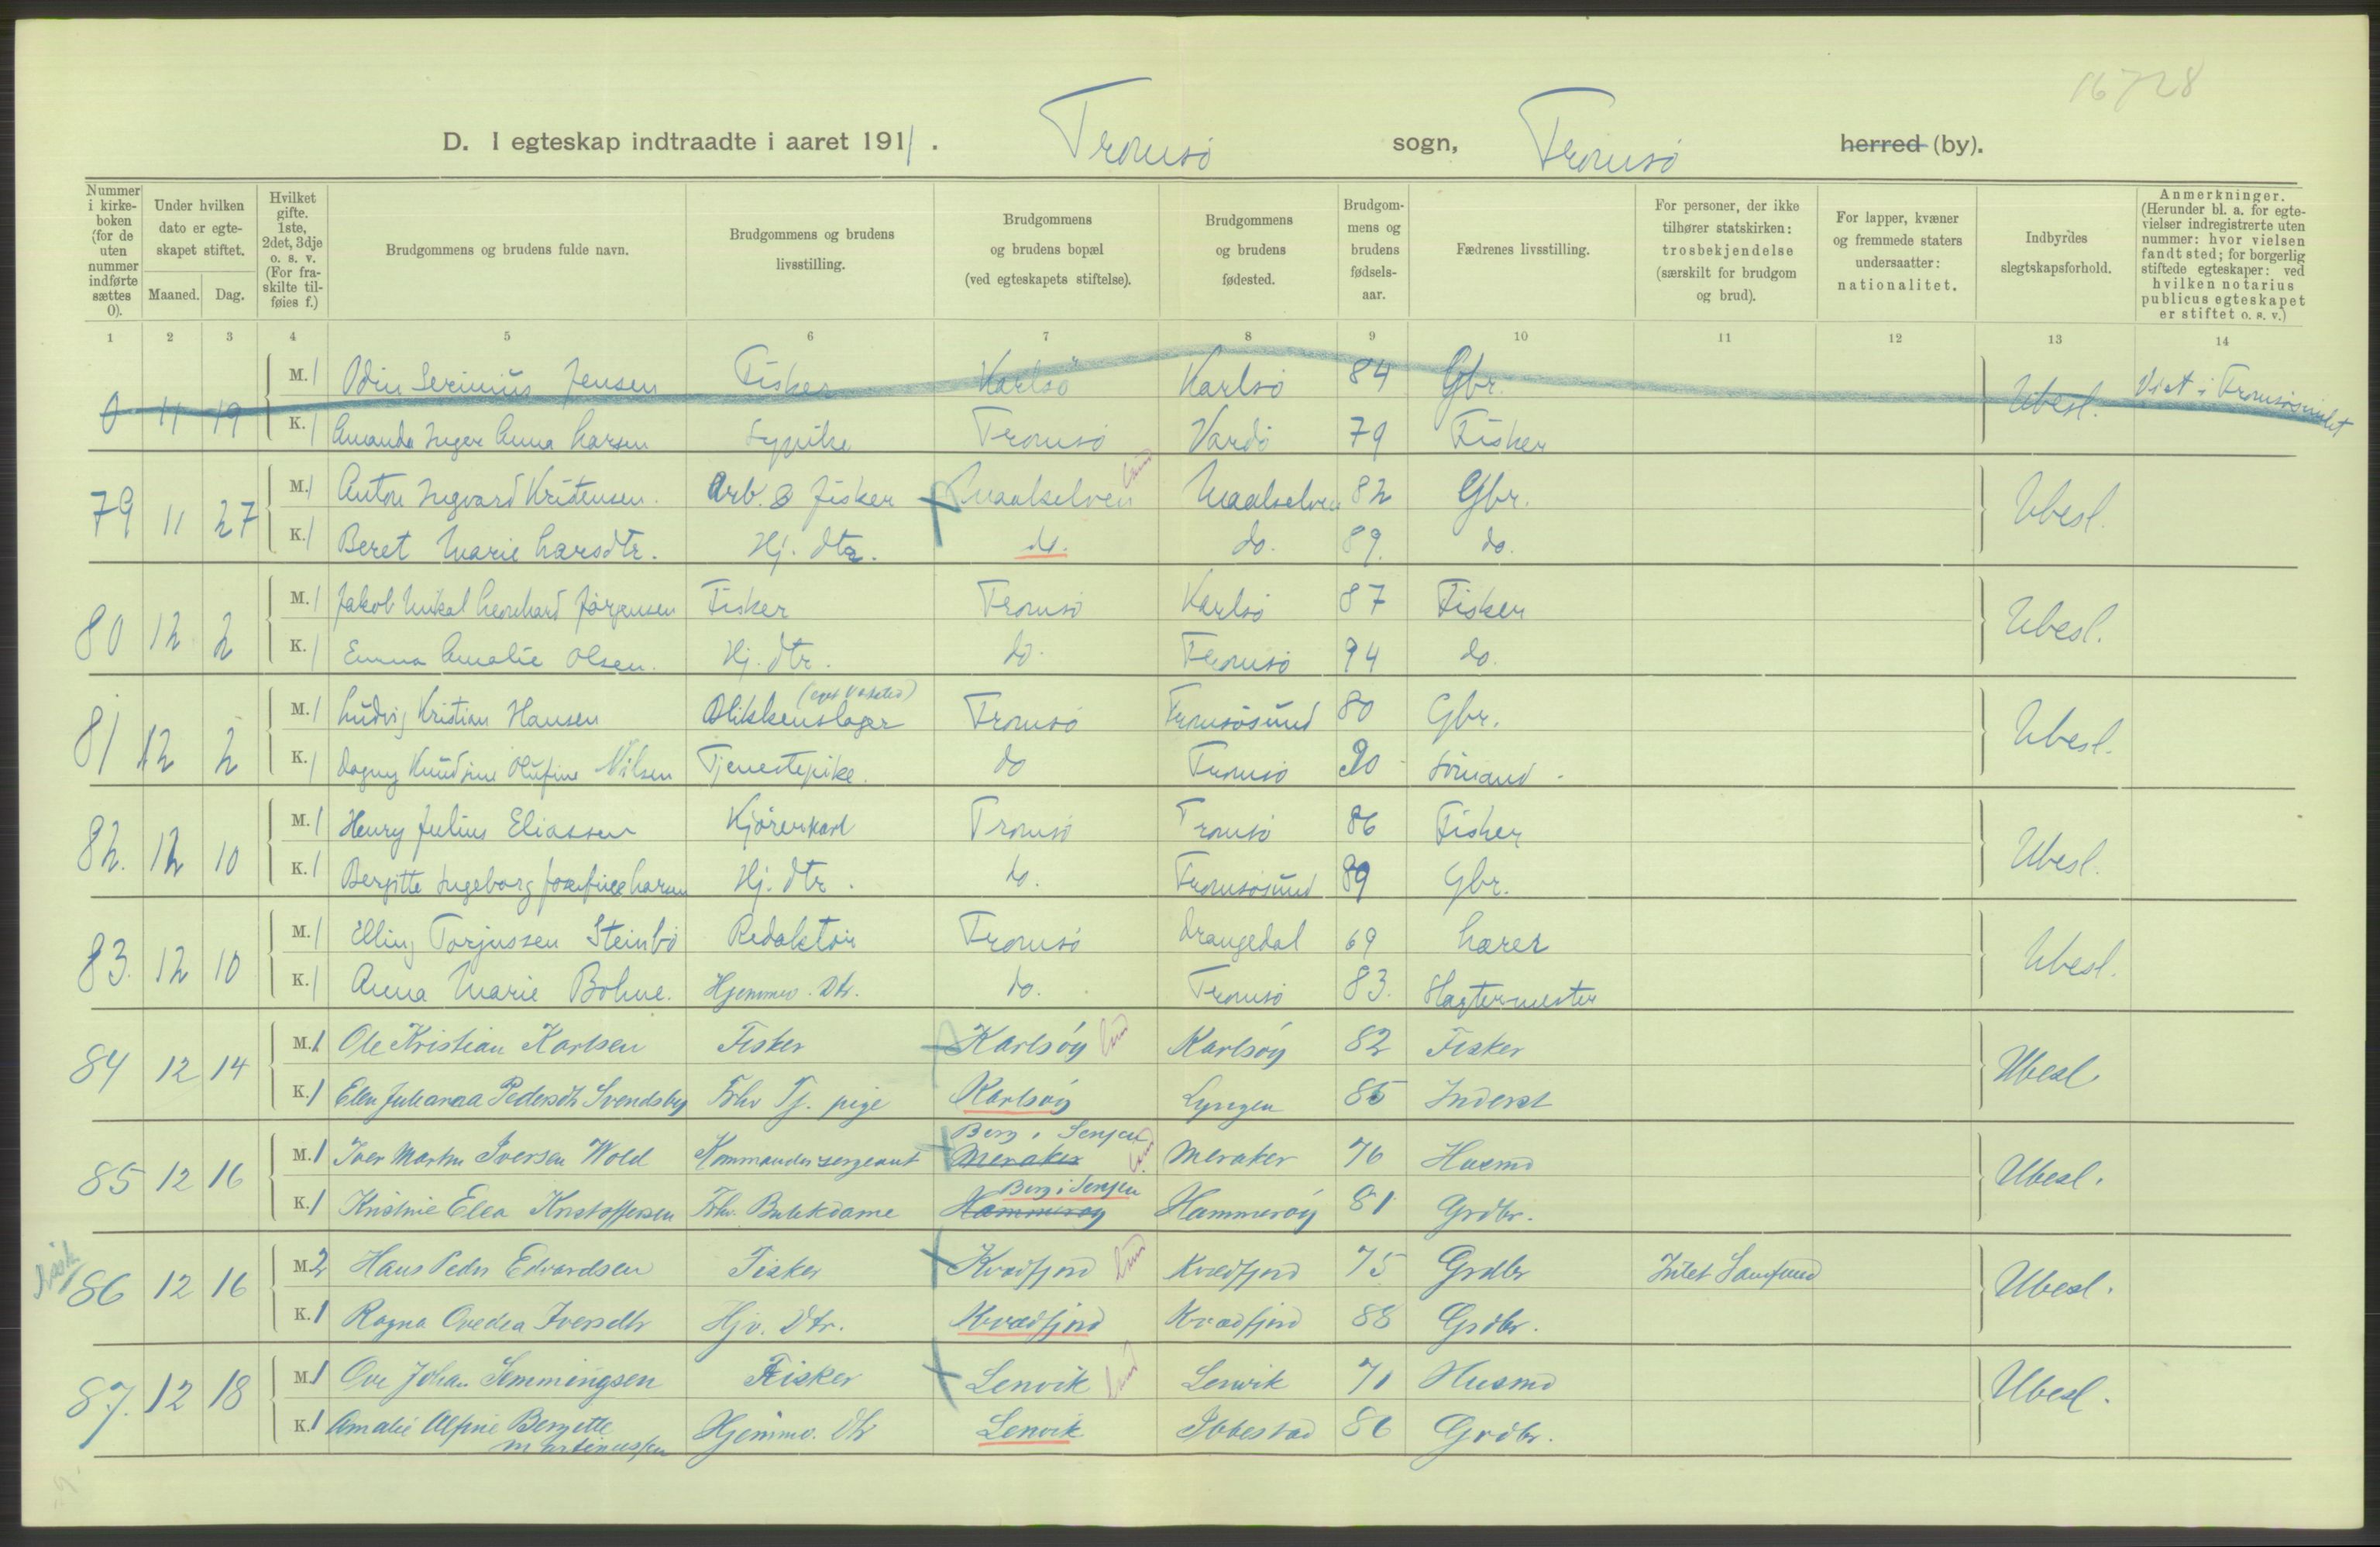 16728
D. I egteskap indtraadte i aaret 1911. Tromsø sogn, Tromsø herred (by).
Nummer i kirkeboken (for de uten nummer indførte sættes 0). Under hvilken dato er egteskapet stiftet. Maaned. Dag. Hvilket gifte. 1ste, 2det, 3dje o. s. v. (For fraskilte tilføies f.) Brudgommens og brudens fulde navn. Brudgommens og brudens livsstilling. Brudgommens og brudens bopæl (ved egteskapets stiftelse). Brudgommens og brudens fødested. Brudgommens og brudens fødselsaar. Fædrenes livsstilling. For personer, der ikke tilhører statskirken: trosbekjendelse (særskilt for brudgom og brud). For lapper, kvæner og fremmede staters undersaatter: nationalitet. Indbyrdes slegtskapsforhold. Anmerkninger. (Herunder bl. a. for egtevielser indregistrerte uten nummer: hvor vielsen fandt sted; for borgerlig stiftede egteskaper: ved hvilken notarius publicus egteskapet er stiftet o. s. v.)
1 2 3 4 5 6 7 8 9 10 11 12 13 14
0 11 19 M. 1 Odin Serinius Jensen Fisker Karlsö Karlsö 84 Gbr. Ubesl. Viet i Tromsøsundet
K. 1 Amanda Inger Anna Larsen Sypike Tromsö Vardö 79 Fisker
79 11 27 M. 1 Anton Ingvard Kristensen. Arb. & fisker Maalselven Maalselven 82 Gbr. Ubesl.
K. 1 Beret Marie Larsdtr. Hj. dtr. do. do. 89. do.
80 12 2 M. 1 Jakob Mikal Leonhard Jørgensen Fisker Tromsö Karlsö 87 Fisker Ubesl.
K. 1 Emma Amalie Olsen. Hj. dtr. do. Tromsö 94 do.
81 12 2 M. 1 Ludvig Kristian Hansen Blikkenslager Tromsö Tromsösund 80 Gbr. Ubesl.
K. 1 Dagny Knudsine Olufine Nilsen Tjenestepike. do Tromsö 90 Sömand.
82. 12 10 M. 1 Henry Julius Eliassen Kjörerkarl Tromsö Tromsö 86 Fisker Ubesl.
K. 1 Bergitte Ingeborg Josefine Larsen Hj. dtr. do. Tromsösund 89 Gbr.
83. 12 10 M. 1 Elling Torjussen Steinbö Redaktör Tromsö Drangedal 69 Lærer Ubesl.
K. 1 Anna Marie Bohne. Hjemmev. Dtr. do. Tromsö 83. Slagtermester
84 12 14 M. 1 Ole Kristian Karlsen Fisker Karlsöy Karlsöy 82 Fisker Ubesl.
K. 1 Elen Juleanna Pedersdtr Svendsby Fhv Tj. pige Karlsöy Lyngen 85 Inderst
85 12 16 M. 1 Iver Martin Iversen Wold Kommandersergeant Berg i Senjen Meraker Meraker 76 Husmd Ubesl.
K. 1 Kristine Elea Kristoffersen Fhv. Butikdame Berg i Senjen Hammeröy Hammeröy 81 Grdbr.
86 12 16 M. 2 Hans Peder Edvardsen Fisker Kvædfjord Kvædfjord 75 Grdbr Intet Samfund Ubesl.
K. 1 Ragna Ovedea Iversdtr Hjv. Dtr. Kvædfjord Kvædfjord 88 Grdbr.
87. 12 18 M. 1 Ove Johan Semmingsen Fisker Lenvik Lenvik 71 Husmd Ubesl.
K. 1 Amalie Alfine Bergette Martinussen Hjemmv. Dtr Lenvik Ibbestad 86 Grdbr.